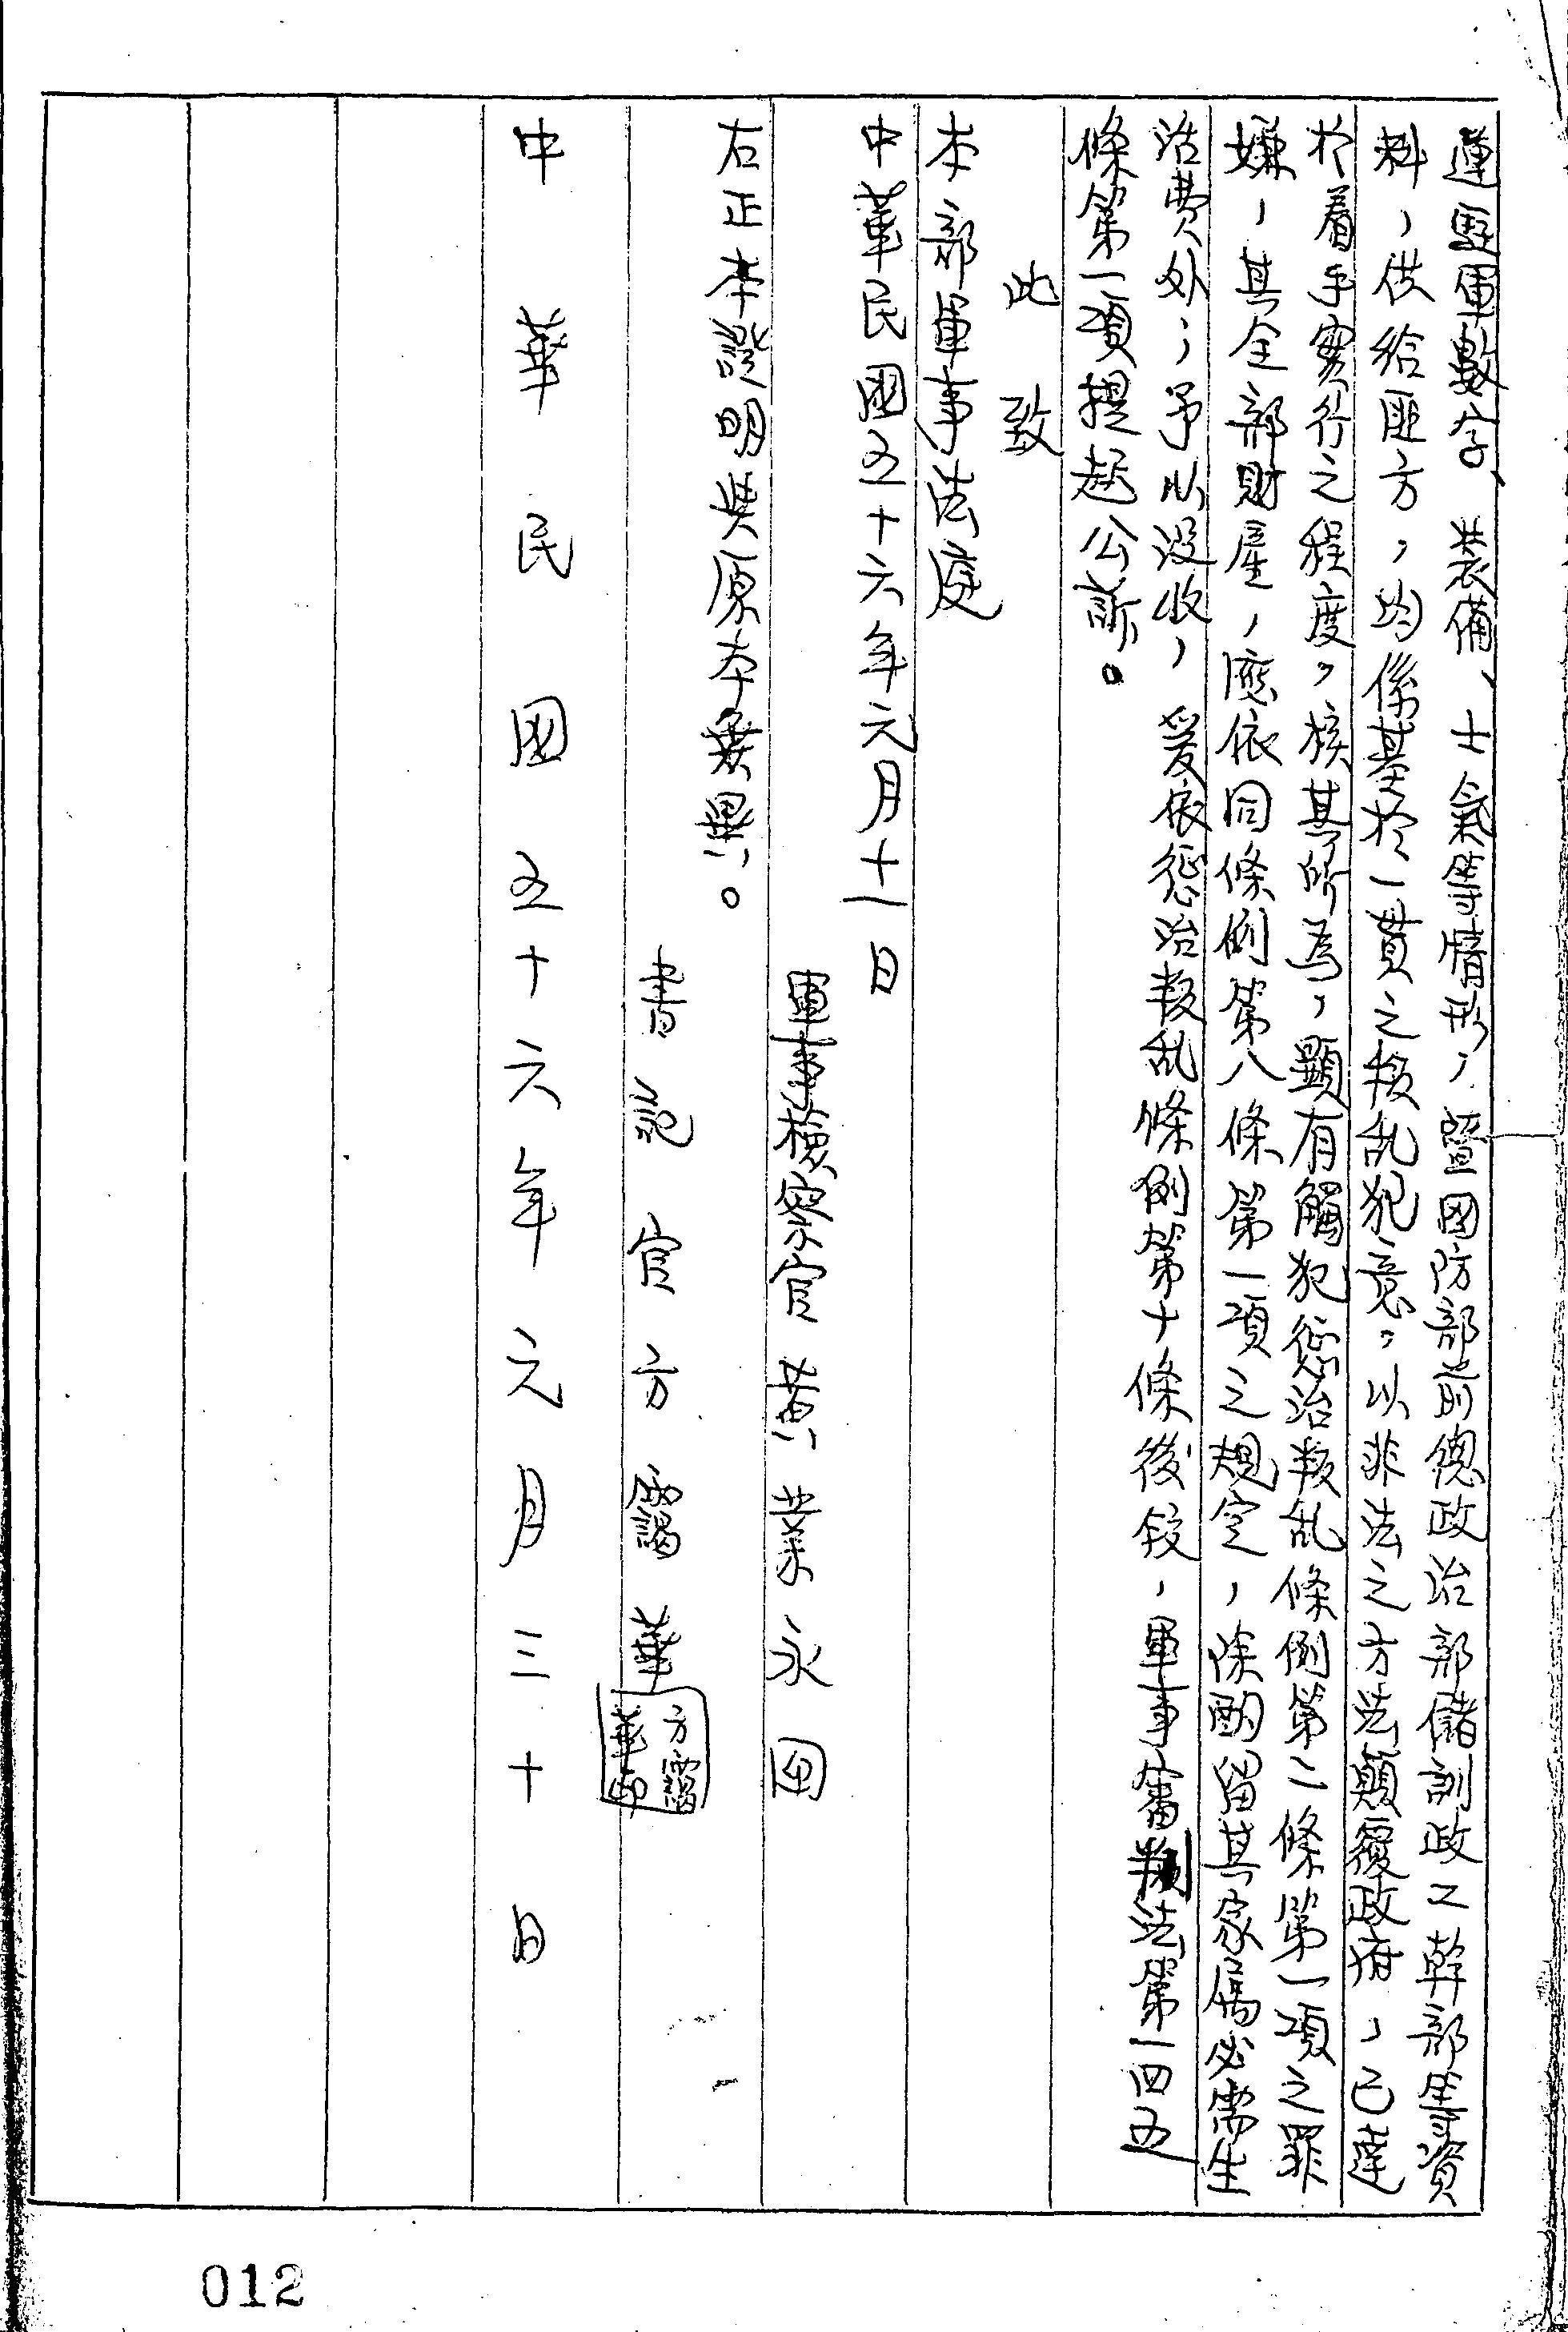 連駐軍數字、裝備、士氣等情形，暨國防部前總政治部儲訓政工幹部等資
料，供給匪方，均係基於一貫之叛乱犯意。以非法之方法顛覆政府，已達
於着手實行之程度。核其所為，顯有觸犯懲治叛乱條例第二條第一項之罪
嫌，其全部財產，應依同條例第八條第一項之規定，除酌留其家屬必需生
活費外，予以沒收，爰依懲治叛乱條例第十條後段，軍事審判法第一四五
條第一項提起公訴。
此致
本部軍事法庭
中華民國五十六年元月十一日
軍事檢察官黃業永
右正本證明與原本無異。
書記官方靄華
方靄華印
中華民國五十六年元月三十日
012